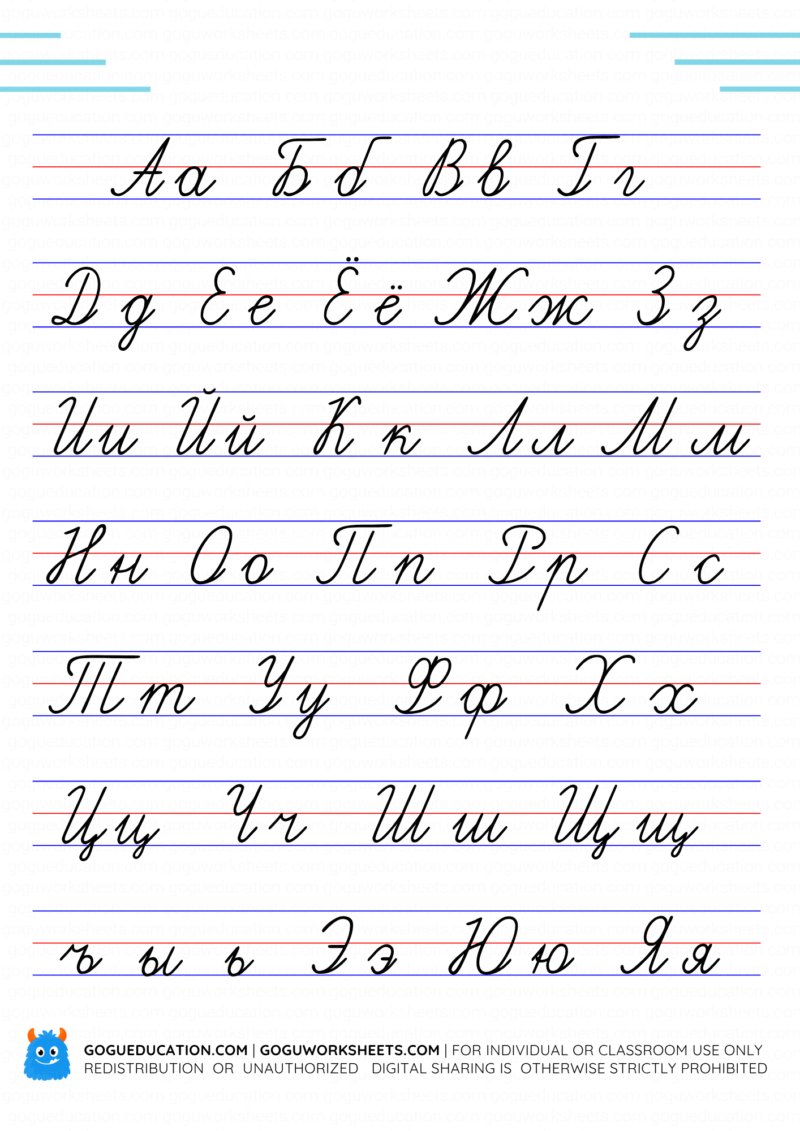 Аа Бб Вв Гг
Дд Ее Ёё Жж Зз
Ии Йй Кк Лл Мм
Нн Оо Пп Рр Сс
Тт Уу Фф Хх
Цц Чч Шш Щщ
ъ ы ь Ээ Юю Яя
GOGUEDUCATION.COM | GOGUWORKSHEETS.COM | FOR INDIVIDUAL OR CLASSROOM USE ONLY
REDISTRIBUTION OR UNAUTHORIZED DIGITAL SHARING IS OTHERWISE STRICTLY PROHIBITED